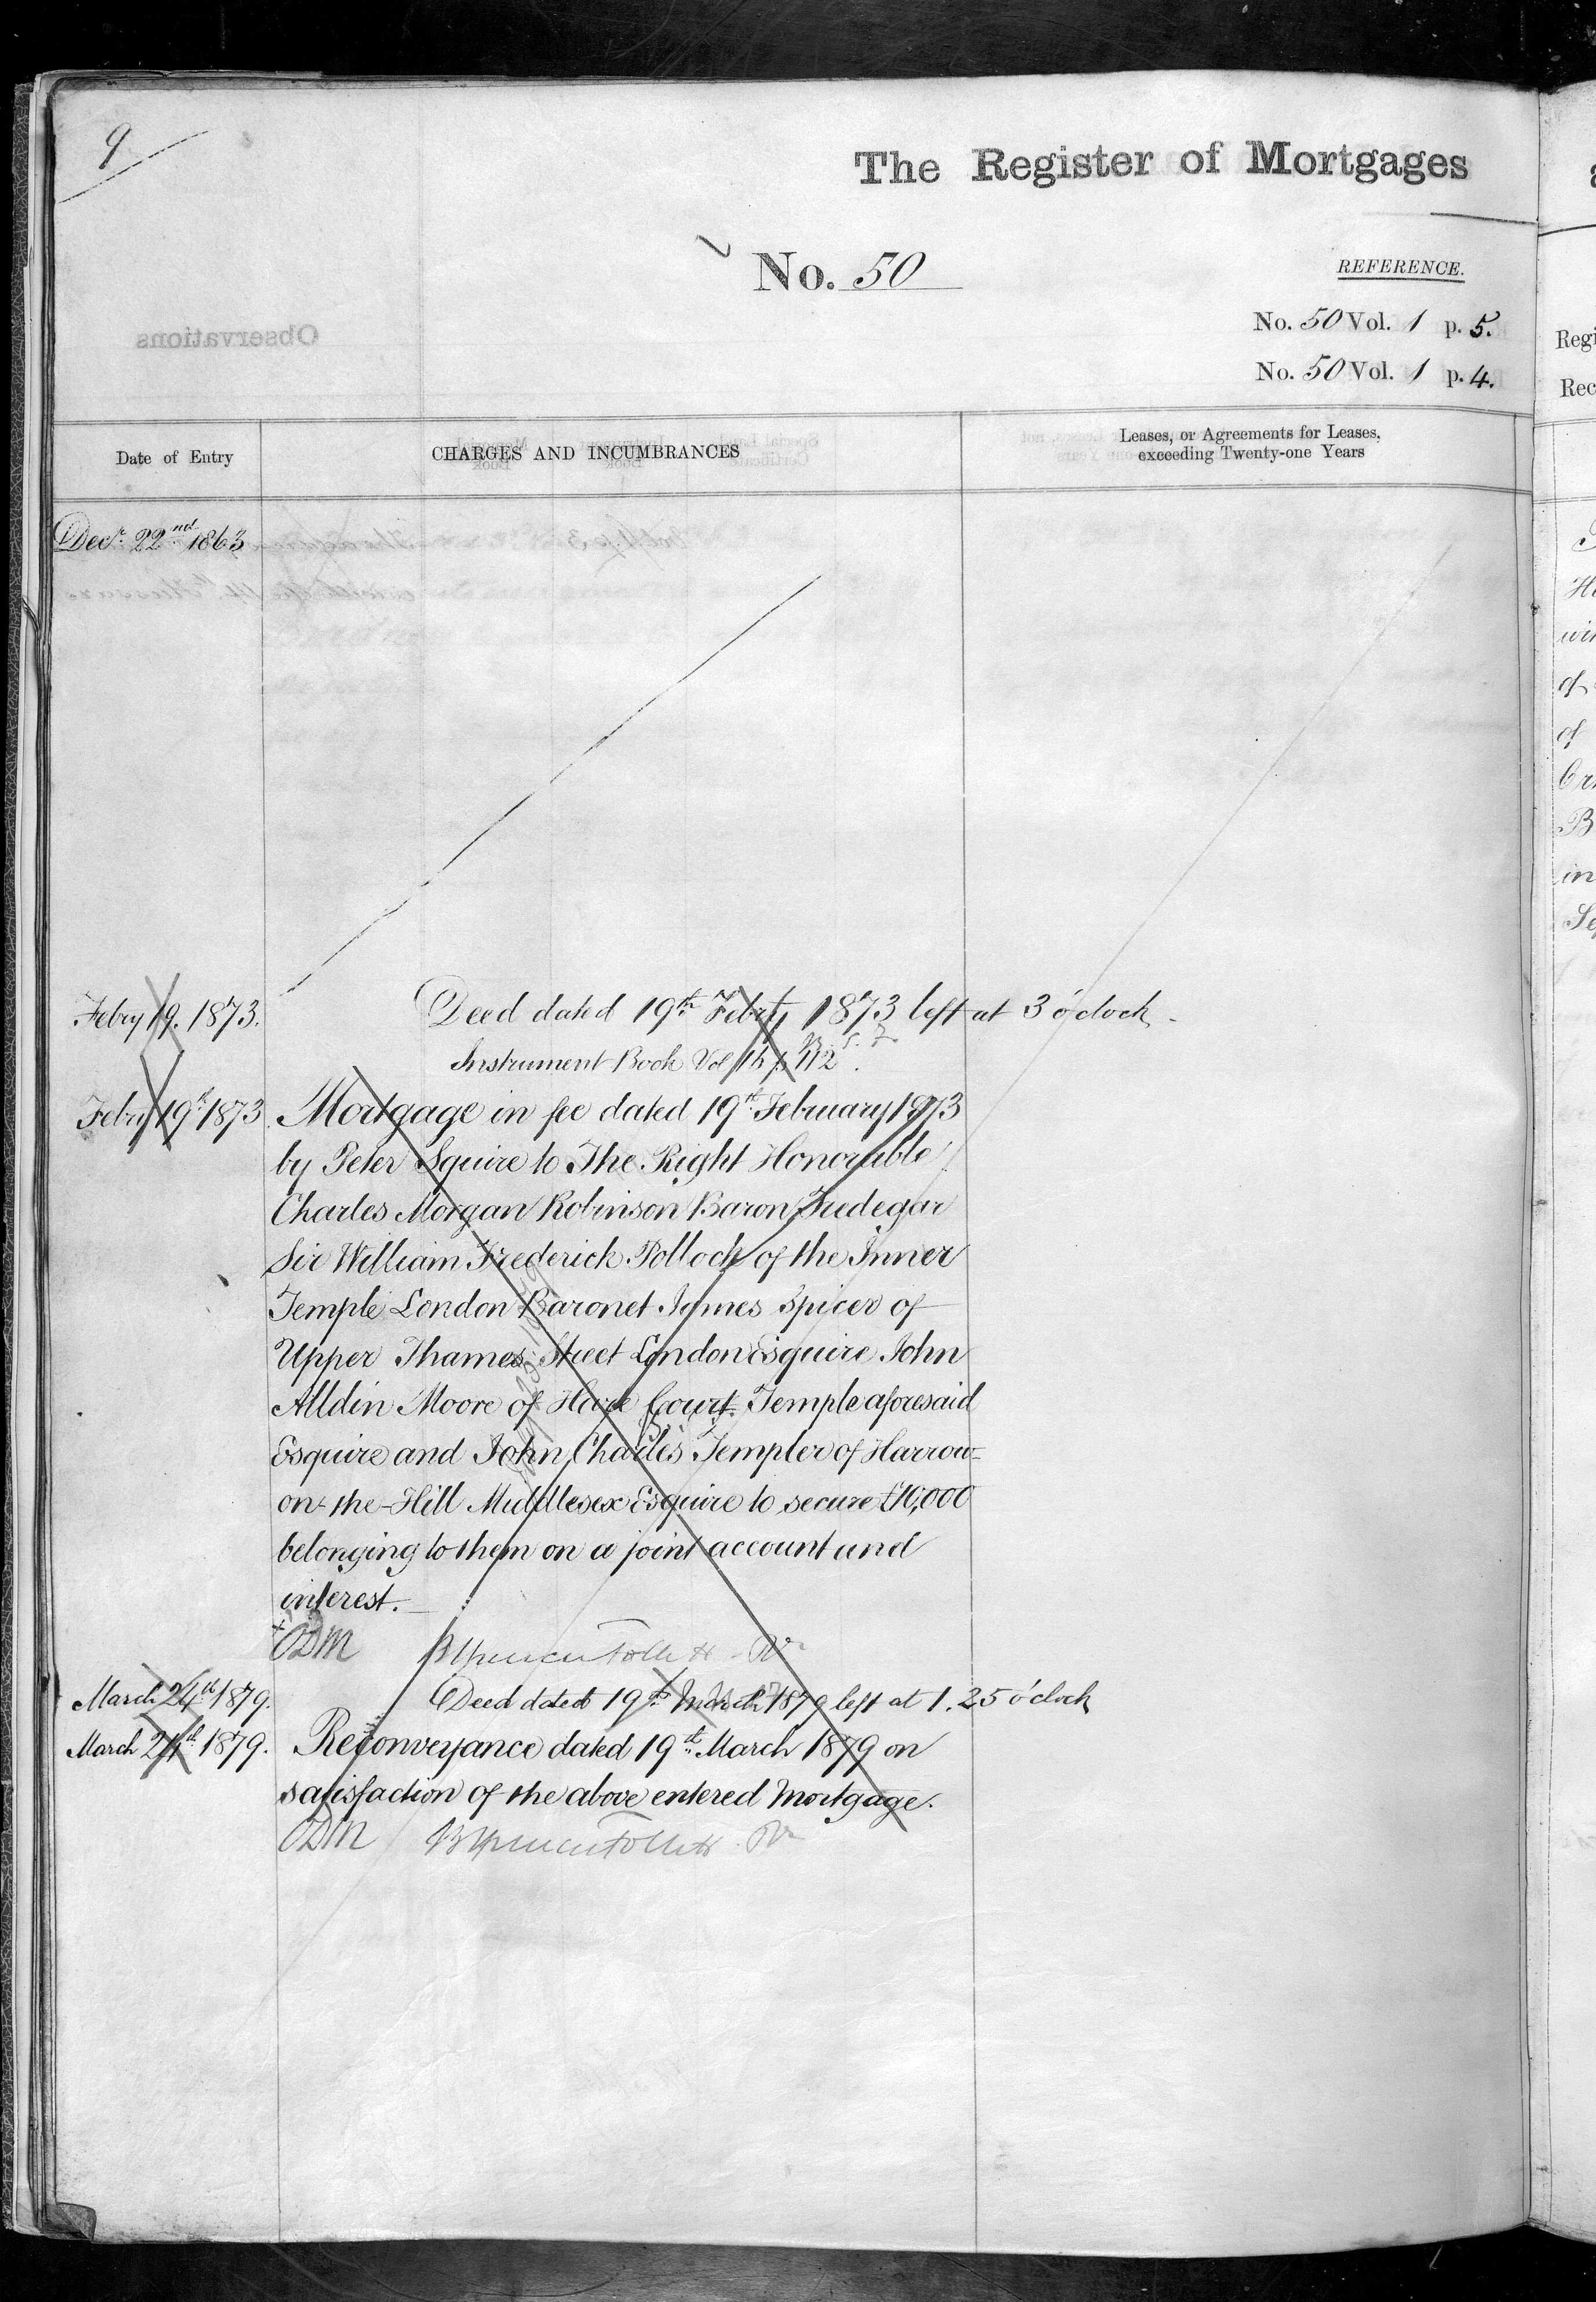 9
The Register of Mortgages
No. 50
REFERENCE.
No. 50 Vol. 1 p. 5.
No. 50 Vol. 1 p. 4.
Date of Entry
CHARGES AND INCUMBRANCES
Leases, or Agreements for Leases,
exceeding Twenty-one Years
Decr. 22nd 1863
Febry 19. 1873. Deed dated 19th Febry 1873 left at 3 o'clock
Instrument Book Vol p 112.
Febry 19th 1873. Mortgage in fee dated 19th February 1873
by Peter Squire to The Right Honorable
Charles Morgan Robinson Baron Tredegar
Sir William Frederick Pollock of the Inner
Temple London Baronet James Spicer of
Upper Thames Street London Esquire John
Alldin Moore of Hare Court Temple aforesaid
Esquire and John Charles Templer of Harrow-
on-the-Hill Middlesex Esquire to secure £10,000
belonging to them on a joint account and
interest.
ODM
March 24th 1879. Deed dated 19th March 1879 left at 1.25 o'clock
March 24th 1879. Reconveyance dated 19th March 1879 on
satisfaction of the above entered Mortgage.
ODM
Regi
Rec
of
of
B
in